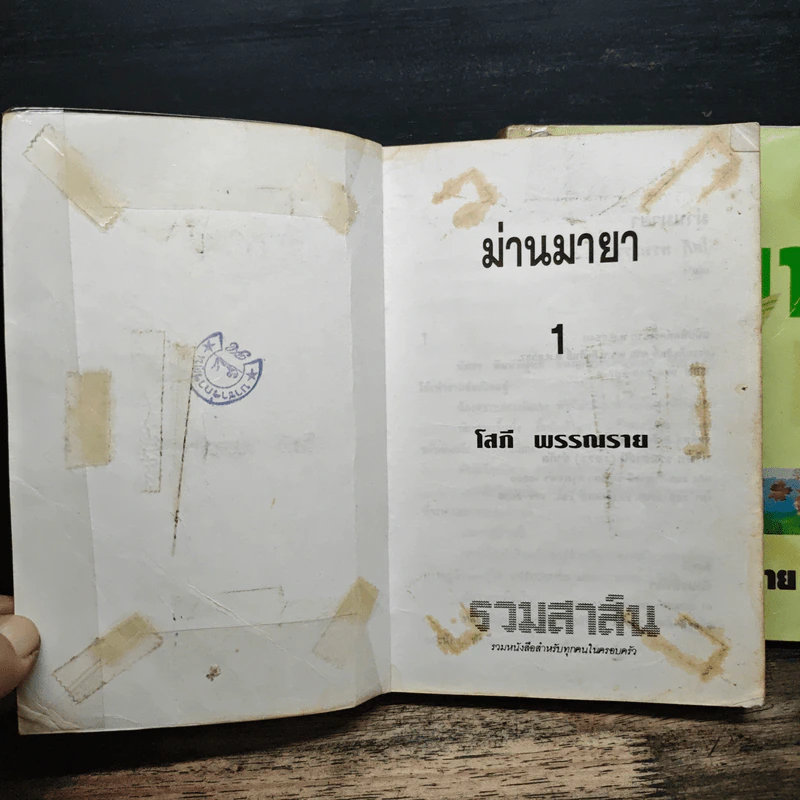 ม่านมายา
1
โสภี พรรณราย
รวมสาส์น
รวมหนังสือสำหรับทุกคนในครอบครัว